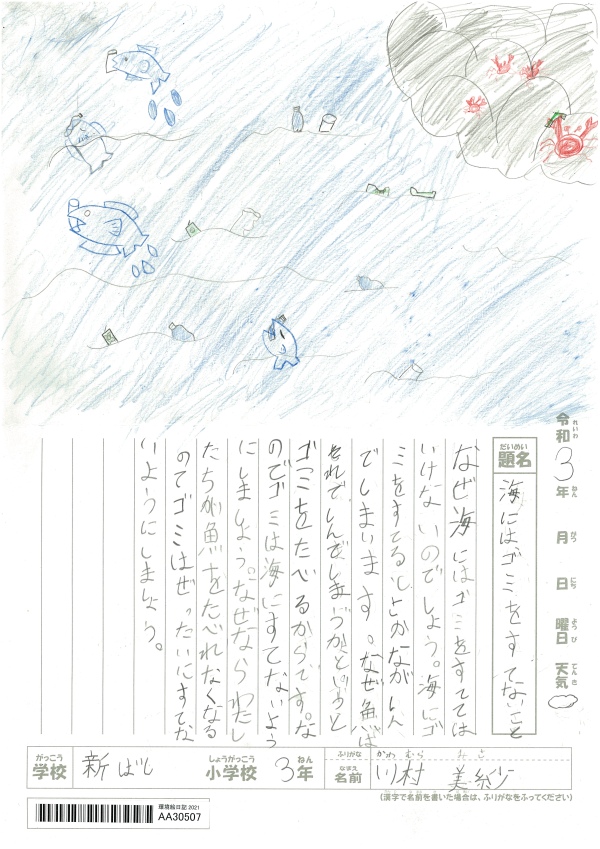 令和3年 月 日 曜日 天気
れいわ ねん がつ にち ようび てんき
だいめい
題名 海にはゴミをすてないこと
なぜ海にはゴミをすてては
いけないのでしょう。海にゴ
ミをすてるとさかながしん
でしまいます。なぜ魚は
それでしんでしまうかというと
ゴミをたべるからです。な
のでゴミは海にすてないよう
にしましょう。なぜならわたし
たちが魚をたべれなくなる
のでゴミはぜったいにすてな
いようにしましょう。
がっこう しょうがっこう ねん ふりがな かわ むら みさ
学校 新ばし 小学校 3年 なまえ 名前 川村 美紗
(漢字で名前を書いた場合は、ふりがなをふってください)
環境絵日記 2021
AA30507